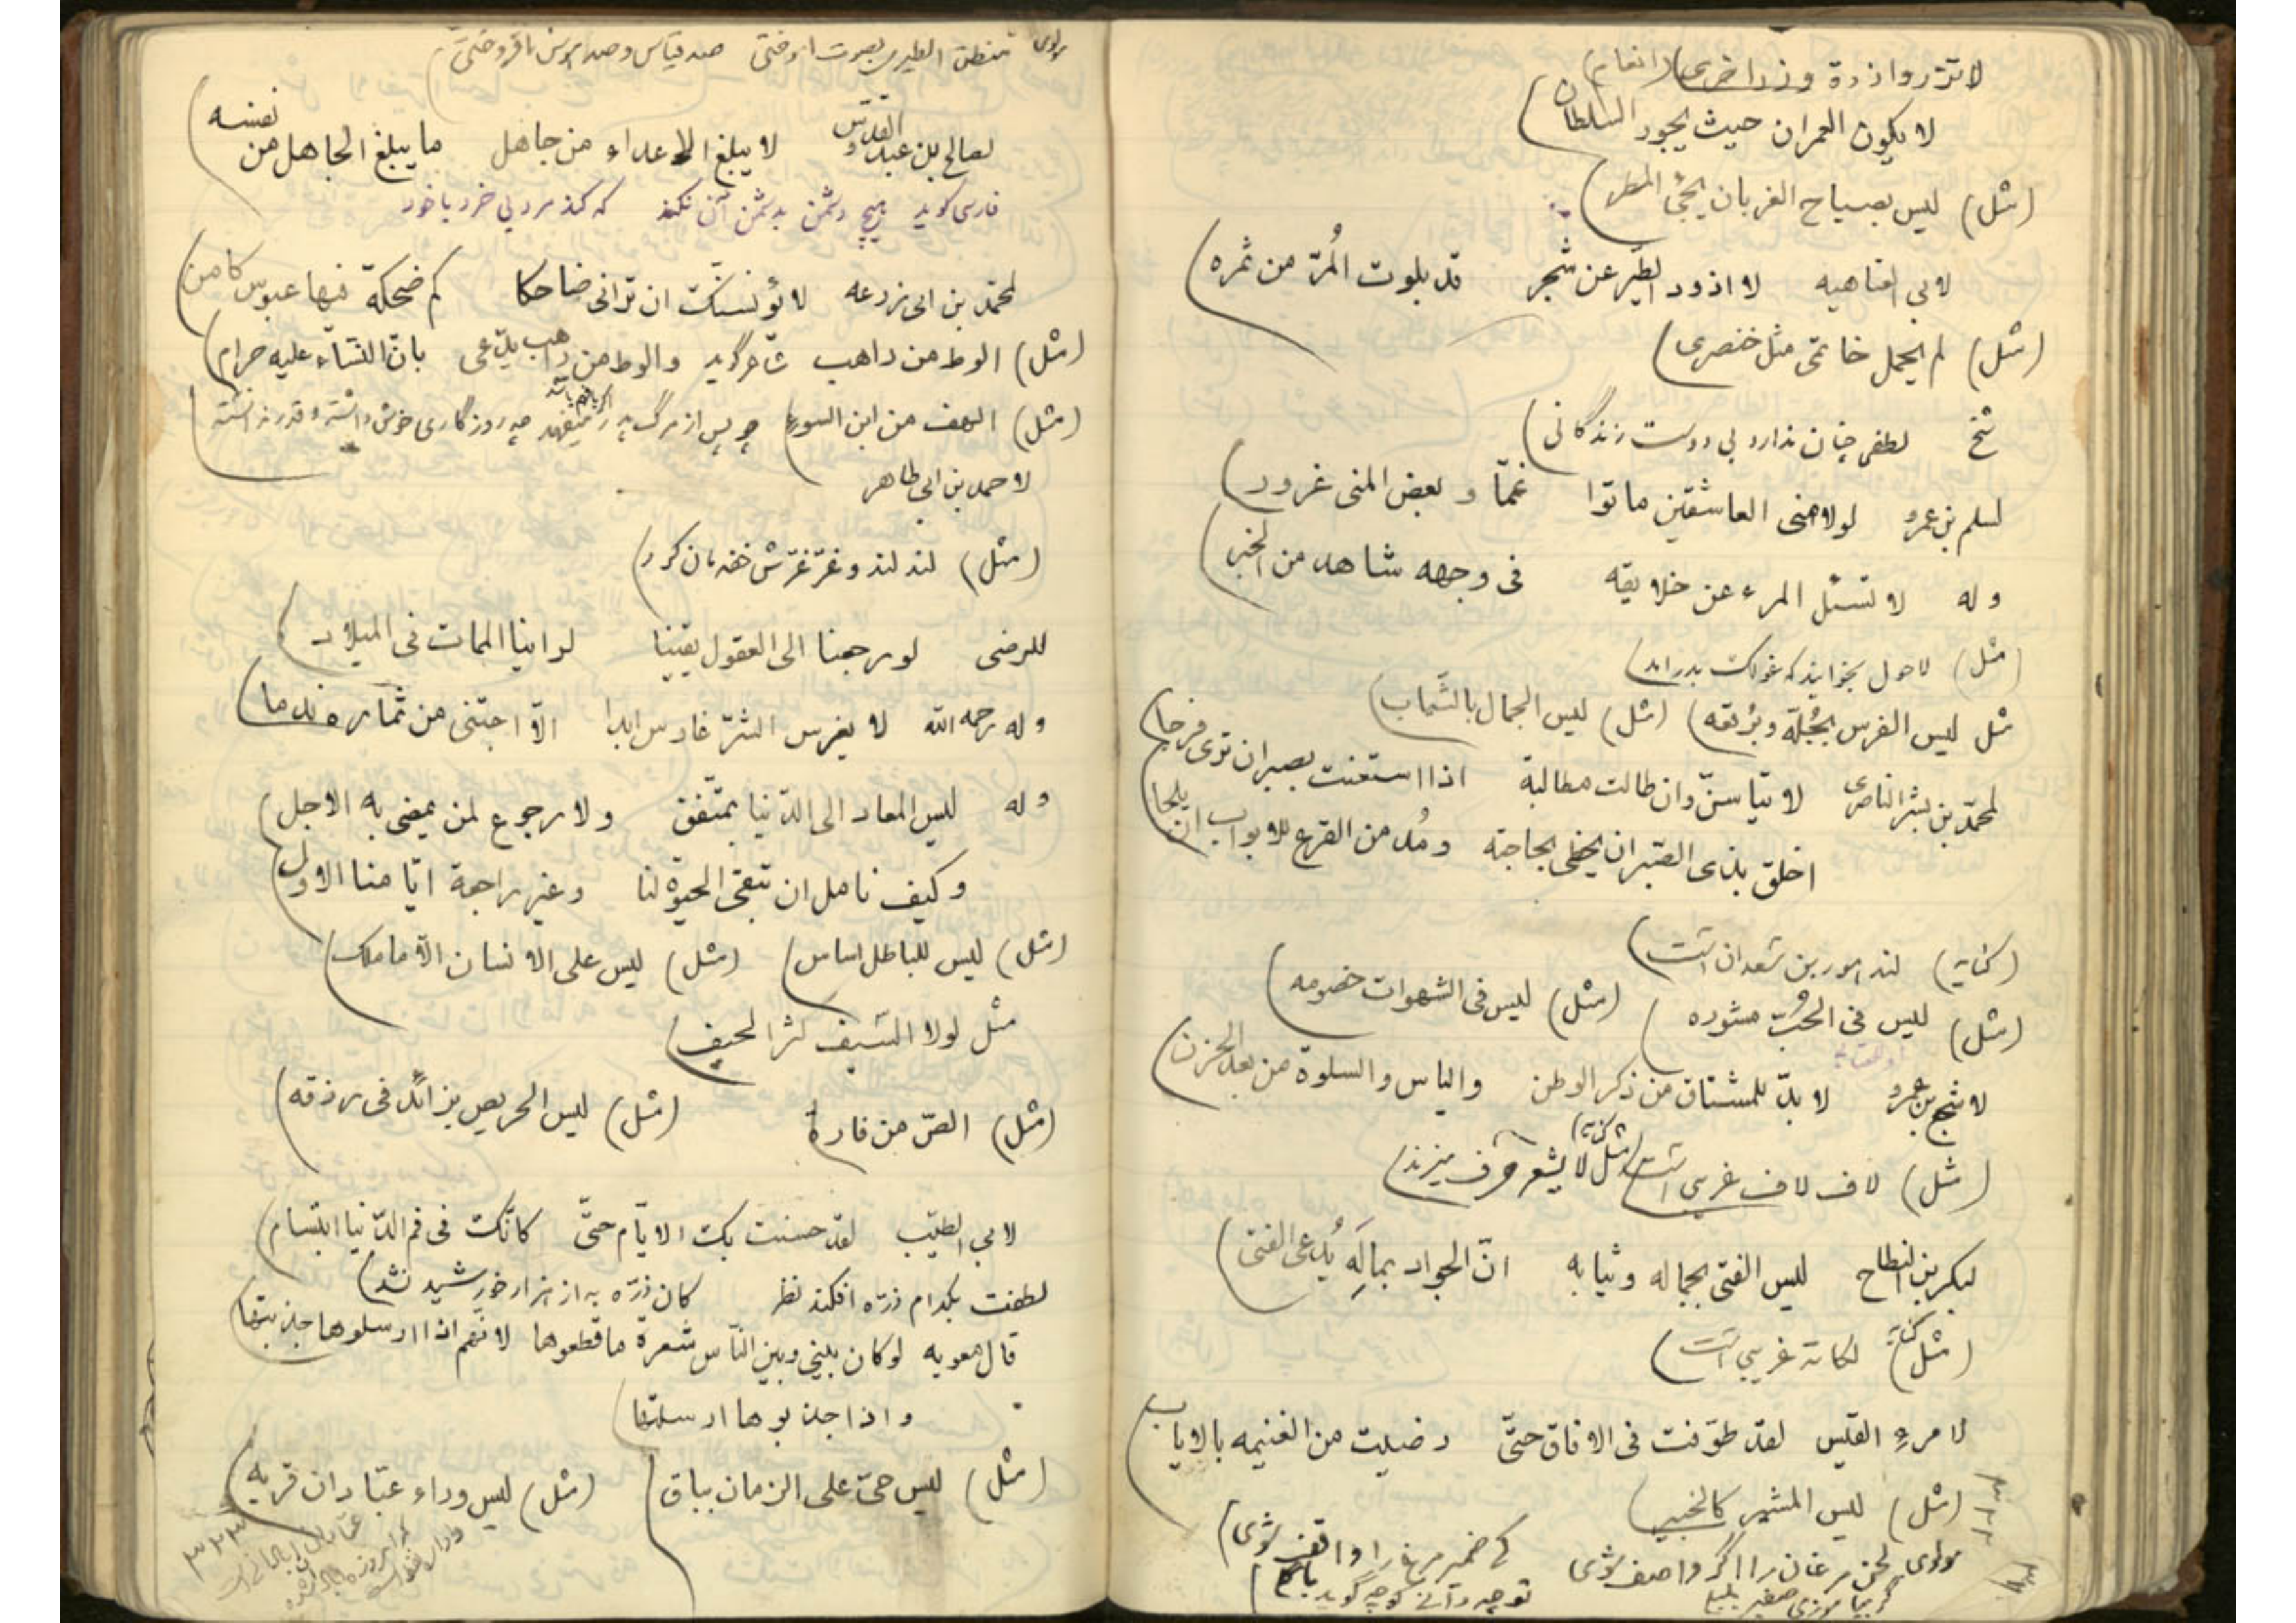 لا تزر وازرة وزر اخرى (انعام)
لا يكون العمران حيث يجور السلطان
(مثل) ليس بصياح الغربان يجئ المطر
لابي العتاهيه لا اذود الطير عن شجر قد بلوت المُرّ من ثمره
(مثل) لم يحمل خاتمى مثل خنصرى
شخ لطفى چنان ندارد بى دوست زندگانى
لسلم بن عمرو لولا منى العاشقين ماتوا غمّا و بعض المنى غرور
و له لا تسئل المرء عن خلايقه فى وجهه شاهد من الخبر
(مثل) لاحول بخوانيد كه غولك بدر امد
مثل ليس الفرس بجُلّه وبُرقعه (مثل) ليس الجمال بالثّياب
لمحمّد بن بشر الناصرى لا تيأسنّ وان طالت مطالبة اذا استعنت بصبر ان ترى فرجا
اخلق بذى الصّبر ان يحظى بحاجته ومُدمن القرع للابواب ان يلجا
(كنايه) لند امور بن سعدان است
(مثل) ليس فى الحُبّ مشوره (مثل) ليس فى الشهوات خصومه
لاشجع بن عمرو لا بدّ للمشتاق من ذكر الوطن والياس والسلوة من بعد الحزن
(مثل) لاف لاف غربى است (مثل كنايه) لا يشعر حرف ميزند
لبكر بن النطاح ليس الفتى بجماله وثيابه انّ الجواد بمالَهِ يُدعى الفتى
(مثل كنايه) لكاته غريبى است
لامرءِ القيس لقد طوّفت فى الافاق حتّى رضيت من الغنيمه بالاياب
(مثل) ليس المشير كالخبير
مولوى لحن مرغان را اگر واصف شوى كے ضمير مرغ را واقف شوى
گر بياموزى صفير بلبلے تو چه دانے كو چه گويد با گلے
مولوى منطق الطيرى بصوت اموختى صد قياس و صد هوس افروختى
لصالح بن عبد القدّوس لا يبلغ الاعداء من جاهل ما يبلغ الجاهل من نفسه
فارسى گويد هيچ دشمن بدشمن آن نكند كه كند مرد بى خرد با خود
لمحمّد بن ابى زرعه لا يؤنسنّك ان ترانى ضاحكا كم ضحكة فيها عبوس كامن
(مثل) الوط من راهب شاعر گويد والوط من راهب يدّعى بانّ النّساء عليه حرام
(مثل) الهف من ابن السوء چو پس از مرگ پدر ميفهمد چه روزگارى خوش داشته و قدر ندانسته
لاحمد بن ابى طاهر
(مثل) لند لند و غرّ غرّش خفه مان كرد
للرضى لو رجعنا الى العقول يقينا لراينا الممات فى الميلاد
و له رحمه الله لا يغرس الشرّ غارس ابدا الّا اجتنى من ثماره ندما
و له ليس المعاد الى الدّنيا بمتّفق ولا رجوع لمن يمضى به الاجل
وكيف نامل ان تبقى الحيوة لنا وغير راجعة ايّامنا الاول
(مثل) ليس للباطل اساس (مثل) ليس على الانسان الّا ما ملك
مثل لولا السّيف كثر الحيف
(مثل) الصّ من فارة (مثل) ليس الحريص بزائد فى رزقه
لابى الطيّب لقد حسنت بك الايّام حتّى كانّك فى فم الدّنيا ابتسام
لطفت بكدام ذرّه افكند نظر كان ذرّه به از هزار خورشيد نشد
قال معويه لو كان بينى وبين النّاس شعرة ما قطعوها لانّهم اذا ارسلوها جذبتها
واذا جذبوها ارسلتها
(مثل) ليس حىّ على الزمان بباق (مثل) ليس وراء عبّادان قريه
۳۲۳